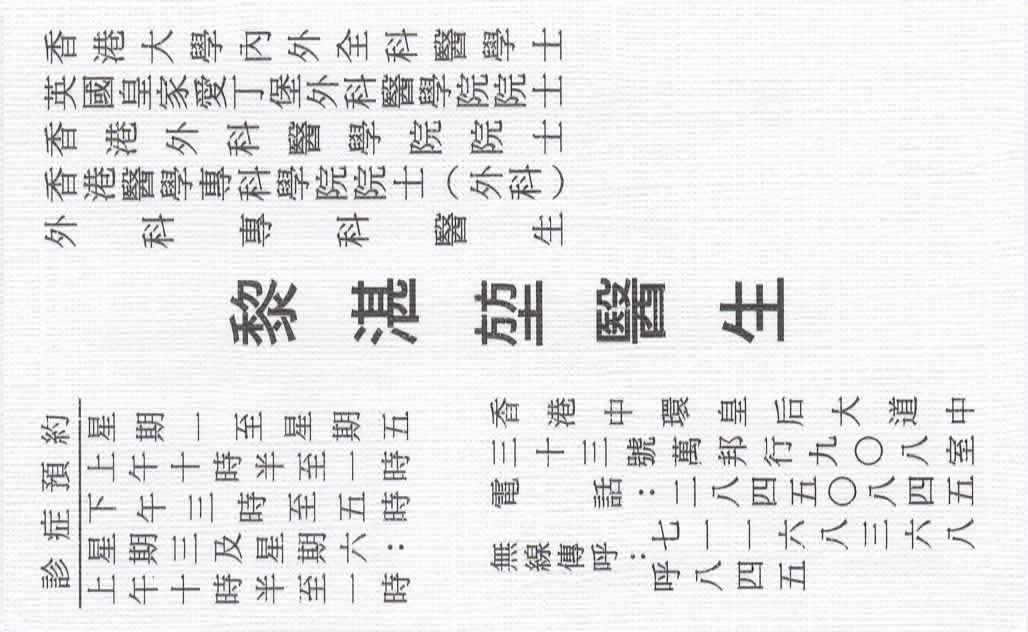 香港大學內外全科醫學士
英國皇家愛丁堡外科醫學院院士
香港外科醫學院院士
香港醫學專科學院院士（外科）
外科專科醫生
黎湛堃醫生
診症預約
星期一至星期五
上午十時半至一時
下午三時至五時
星期三及星期六：
上午十時半至一時
香港中環皇后大道中
三十三號萬邦行九〇八室
電話：二八四五〇八四五
無線傳呼：七一一六八三六八
呼八四五